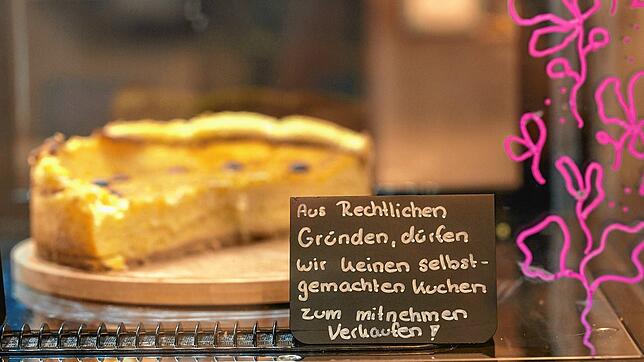 Aus Rechtlichen
Gründen, dürfen
wir keinen selbst-
gemachten Kuchen
zum mitnehmen
Verkaufen!